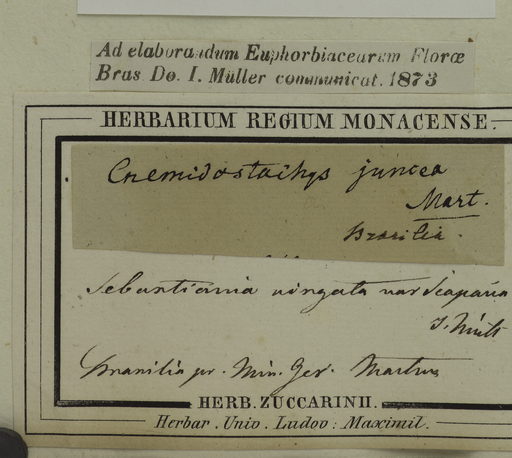 Ad elaborandum Euphorbiacearum Floræ
Bras Do. I. Müller communicat. 1873
HERBARIUM REGIUM MONACENSE.
Cnemidostachys juncea
Mart.
Brasilia.
Sebastiania virgata var scoparia
J. Müll
Brasilia pr. Min. Ger. Martius
HERB. ZUCCARINII.
Herbar. Univ. Ludov: Maximil.